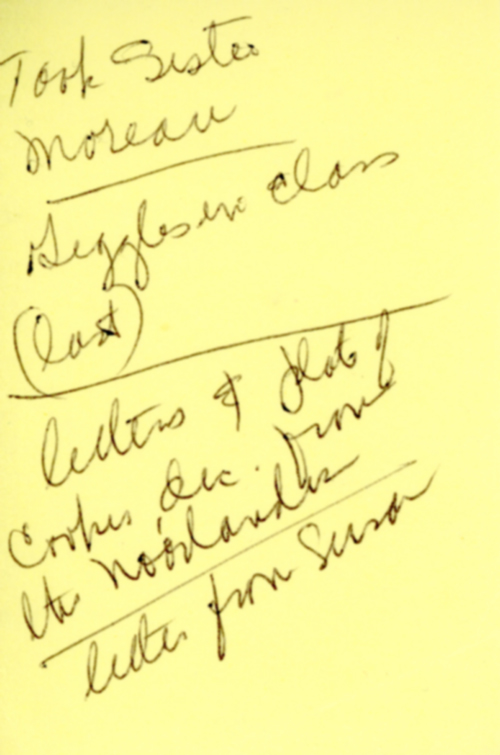 Took Sister
Moreau
Giggles in class
(last)
letters & plate of
Cookies Dec. from
the Noorlander
letter from Susan